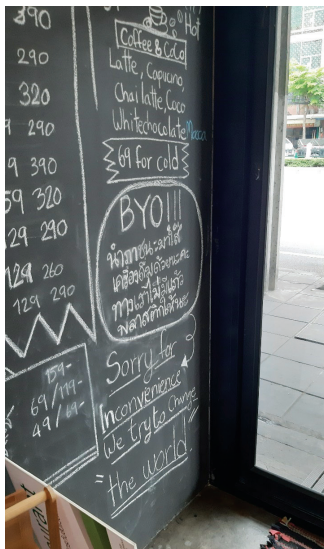 390
290
320
9 290
9 390
59 320
29 290
129 260
129 290
159-
69/119-
49/69-
Hot
Coffee & CoCo
Latte, Capucino,
Chai latte, Coco
Whitechocolate Mocca
69 for cold
BYO!!!
นำภาชนะมาใส่
เครื่องดื่มด้วยนะคะ
ทางเราไม่มีแก้ว
พลาสติกให้นะ
Sorry for
Inconvenience
We try to Change
"the world!"